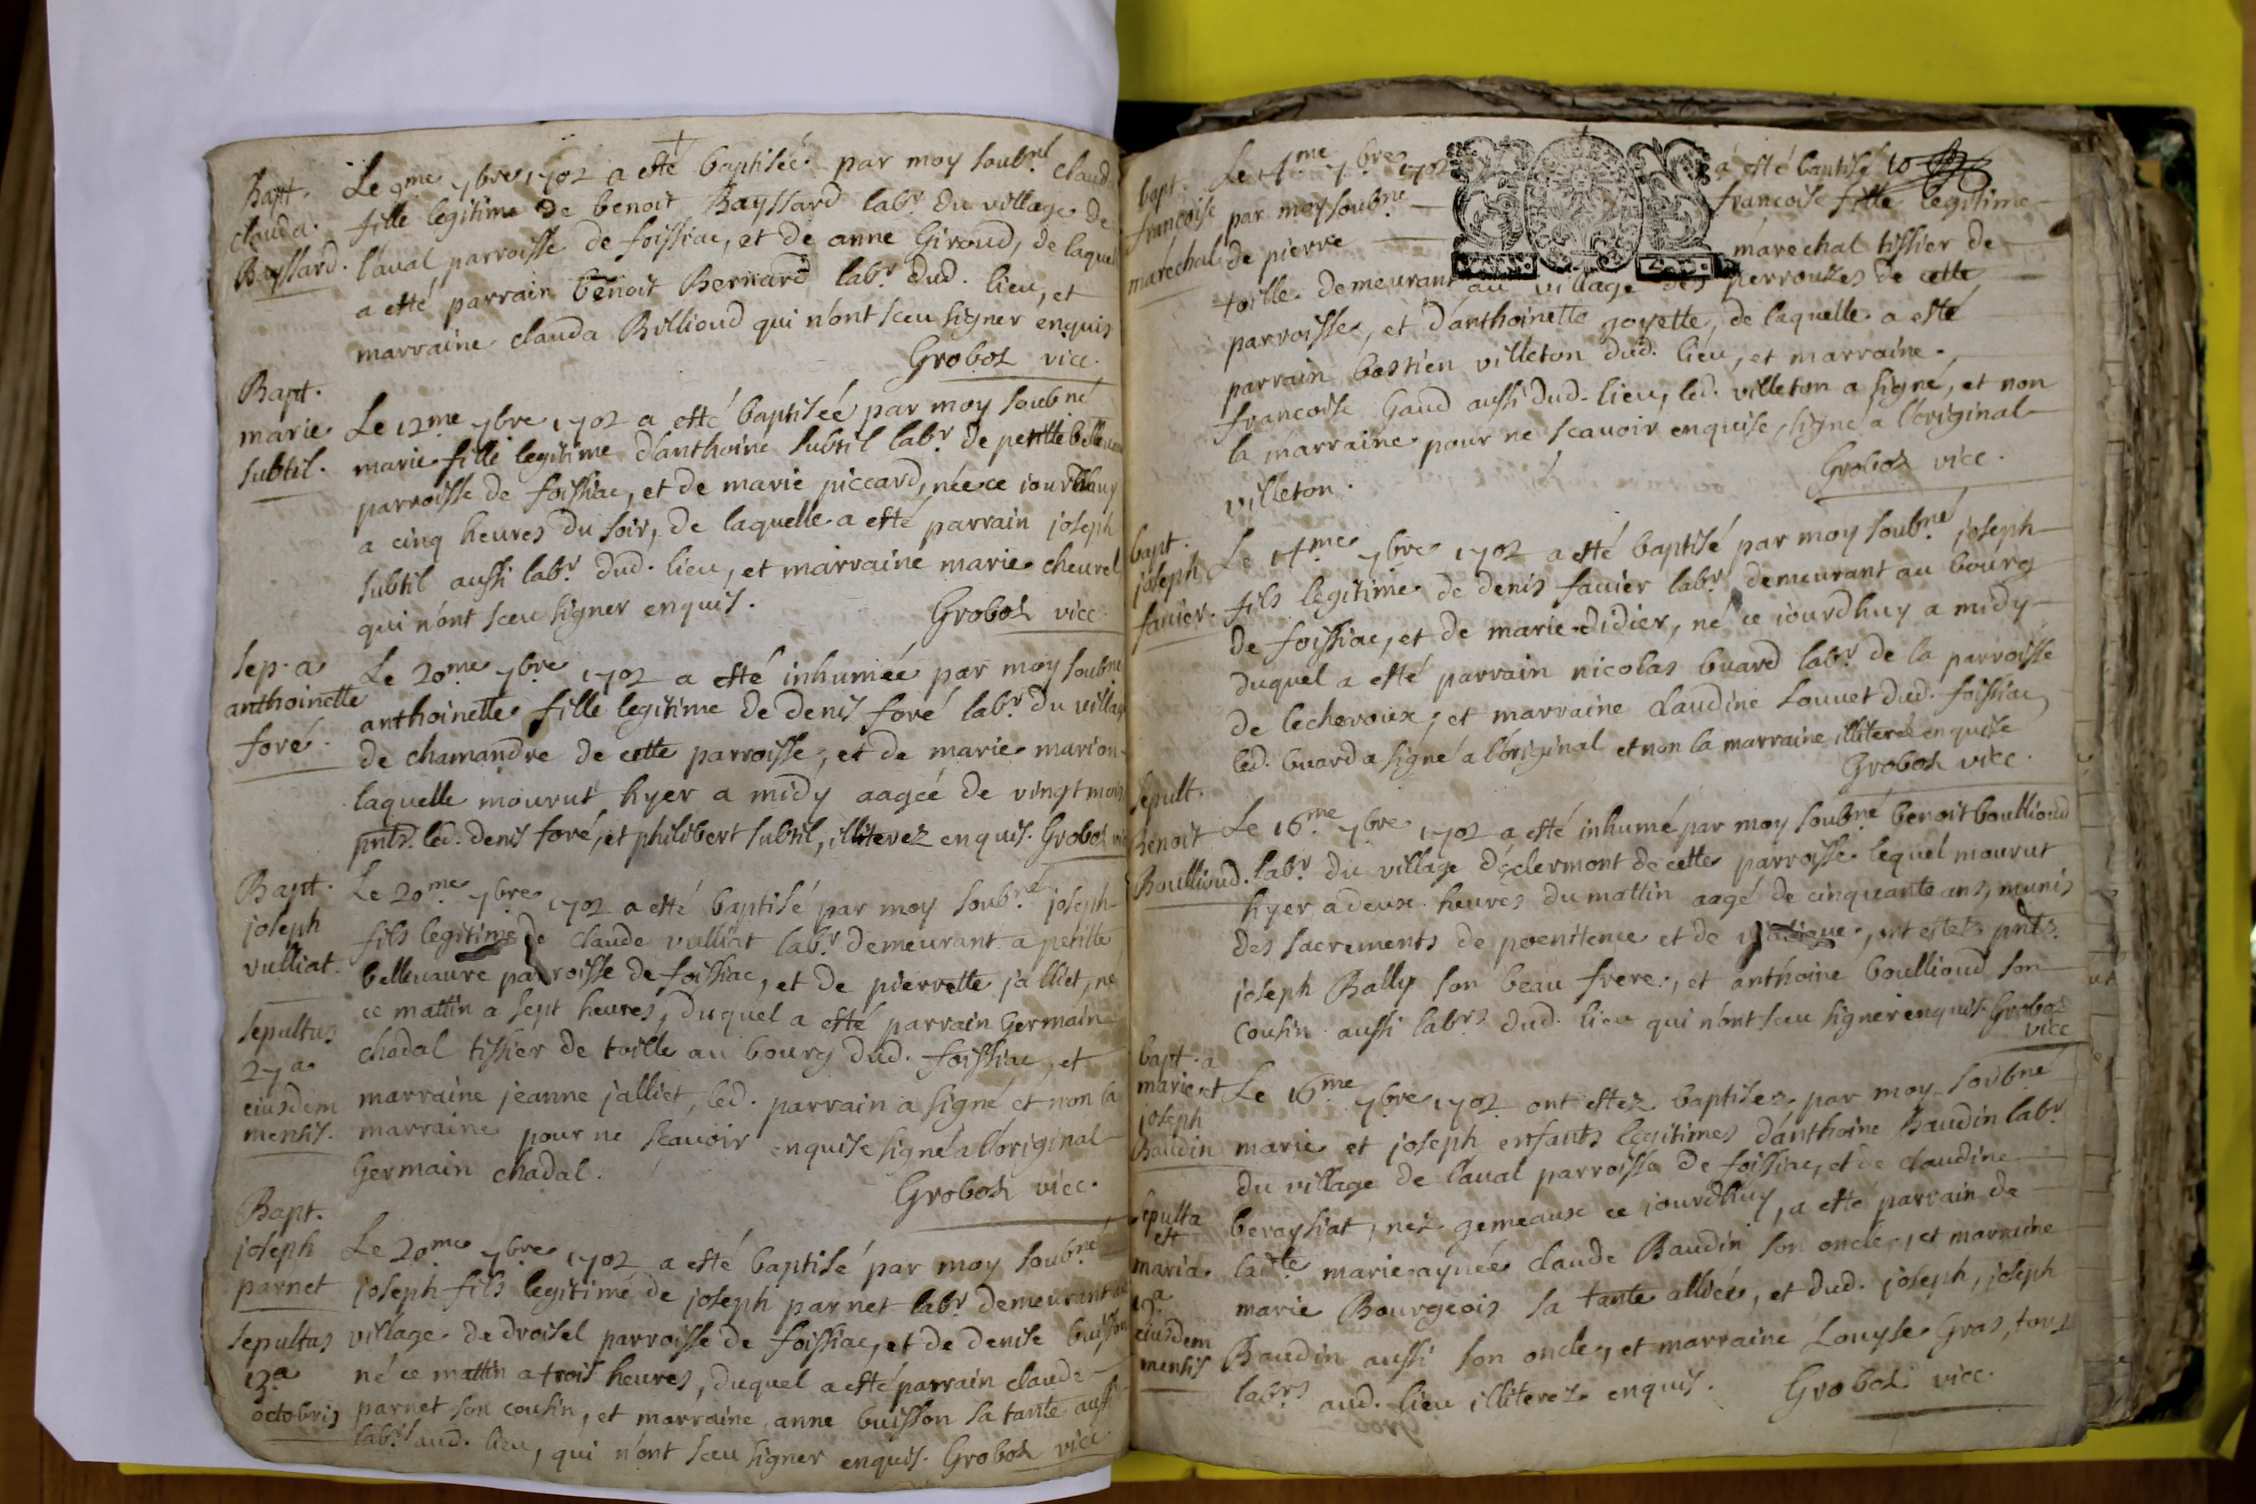 Bapt.
clauda.
Bayssard.
Le 9me 7bre 1702 a esté baptiséé par moy soubné claud
fille legitime de benoit Bayssard labr du village de
laual parroisse de foissiac, et de anne Giroud, de laquel
a esté parrain benoit Bernard labr dud. lieu, et
marraine clauda Billioud qui n'ont sceu signer enquis
Groboz vicc.
Bapt.
marie
subtil.
Le 12me 7bre 1702 a esté baptiséé par moy soubné
marie fille legitime d'anthoine subtil labr de petitte belle
parroisse de foissiac, et de marie piccard, néé ce jourdhuy
a cinq heures du soir, de laquelle a esté parrain joseph
subtil aussi labr dud. lieu, et marraine marie cheurel
qui n'ont sceu signer enquis.
Groboz vicc.
sep. a
anthoinette
foré.
Le 20me 7bre 1702 a esté inhuméé par moy soubné
anthoinette fille legitime de denis foré labr du villag
de chamandre de cette parroisse, et de marie marion
laquelle mourut hyer a midy aagéé de vingt mois
pnts. led. denis foré, et philibert subtil, illiterez enquis. Groboz vic
Bapt.
joseph
vulliat.
Le 20me 7bre 1702 a esté baptisé par moy soubné joseph
fils legitime de claude vulliat labr demeurant a petitte
belleuaure parroisse de foissiac, et de pierrette jalliet, né
ce mattin a sept heures, duquel a esté parrain Germain
chadal tissier de toille au bourg dud. foissiac, et
marraine jeanne jalliet, led. parrain a signé et non la
marraine pour ne scauoir enquise signé a l'original
Germain chadal.
Groboz vicc.
sepultus
27a
eiusdem
mensis.
Bapt.
joseph
parnet
Le 20me 7bre 1702 a esté baptisé par moy soubné
joseph fils legitime de joseph parnet labr demeurant au
village de droisel parroisse de foissiac, et de denise buisson
né ce mattin a trois heures, duquel a esté parrain claude
parnet son cousin, et marraine anne buisson sa tante aussi
labrs aud. lieu, qui n'ont sceu signer enquis. Groboz vicc.
sepultus
13a
octobris
bapt.
francoise
maréchal
Le 14me 7bre 1702 a esté baptisé 10
par moy soubné francoise fille legitime
de pierre maréchal tissier de
toille demeurant au village des perrouzes de cette
parroisse, et d'anthoinette goyette, de laquelle a esté
parrain bastien villeton dud. lieu, et marraine
francoise Gaud aussi dud. lieu, led. villeton a signé, et non
la marraine pour ne scauoir enquise, signé a l'original
villeton.
Groboz vicc.
bapt.
joseph
fauier.
Le 14me 7bre 1702 a esté baptisé par moy soubné joseph
fils legitime de denis fauier labr demeurant au bourg
de foissiac, et de marie didier, né ce jourdhuy a midy
duquel a esté parrain nicolas buard labr de la parroisse
de lecheroux, et marraine claudine Louuet dud. foissiac
led. buard a signé a l'original et non la marraine illiteréé enquise
Groboz vicc.
sepult.
Benoit
Boullioud.
Le 16me 7bre 1702 a esté inhumé par moy soubné benoit boullioud
labr du village de clermont de cette parroisse lequel mourut
hyer a deux heures du mattin aagé de cinquante ans, munis
des sacrements de poenitence et de viatique, ont estez pnts.
joseph Bally son beau frere, et anthoine boullioud son
cousin aussi labrs dud. lieu qui n'ont sceu signer enquis. Groboz
vicc
bapt. a
marie et
joseph
Baudin
Le 16me 7bre 1702 ont estez baptisez par moy soubné
marie et joseph enfants legitimes d'anthoine Baudin labr
du village de laual parroisse de foissiac, et de claudine
beraysiat, nez gemeaux ce jourdhuy, a esté parrain de
ladte marie aynéé claude Baudin son oncle, et marraine
marie Bourgeois sa tante alliéé, et dud. joseph, joseph
Baudin aussi son oncle, et marraine Louyse Gras, tous
labrs aud. lieu illiterez enquis. Groboz vicc.
sepulta
est
maria
eiusdem
mensis